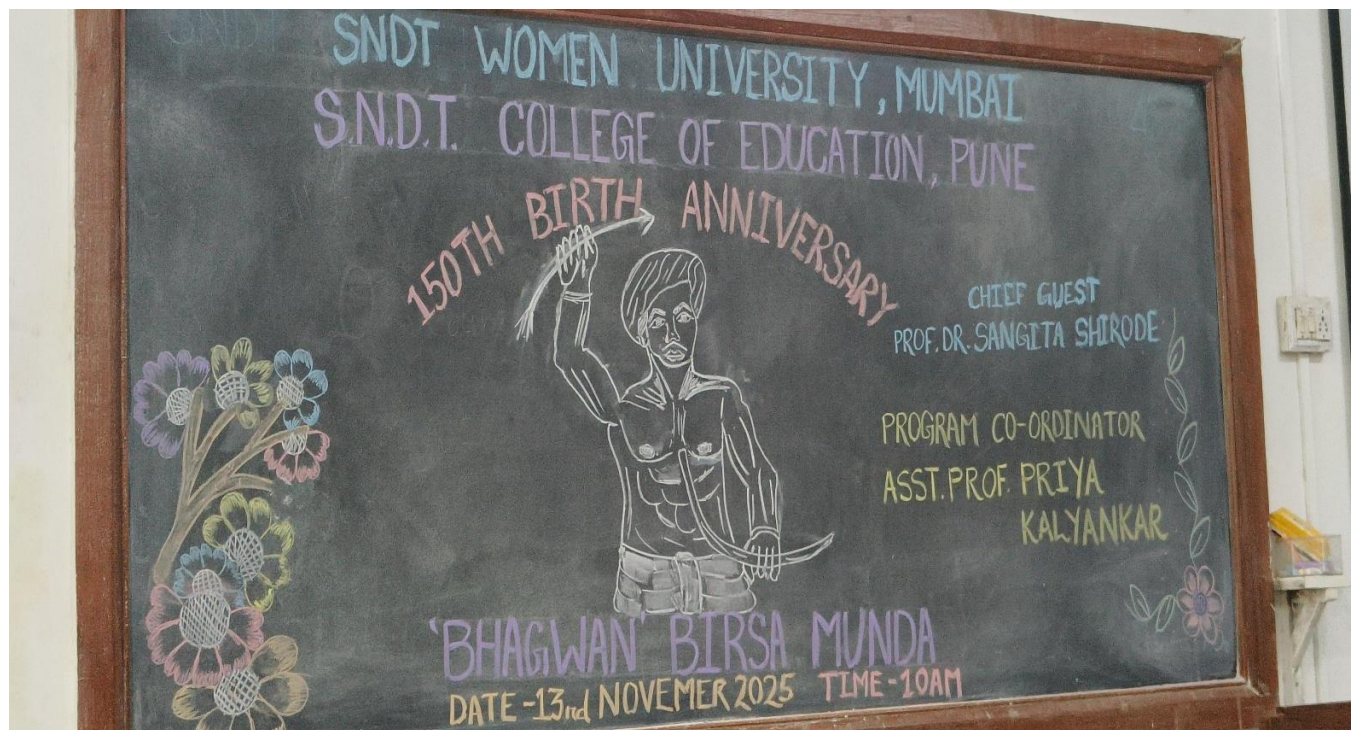 SNDT WOMEN UNIVERSITY, MUMBAI
S.N.D.T. COLLEGE OF EDUCATION, PUNE
150TH BIRTH ANNIVERSARY
CHIEF GUEST
PROF. DR. SANGITA SHIRODE
PROGRAM CO-ORDINATOR
ASST. PROF. PRIYA
KALYANKAR
'BHAGWAN' BIRSA MUNDA
DATE - 13rd NOVEMER 2025 TIME - 10AM